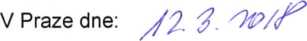 V Praze dne: 12.3.2018